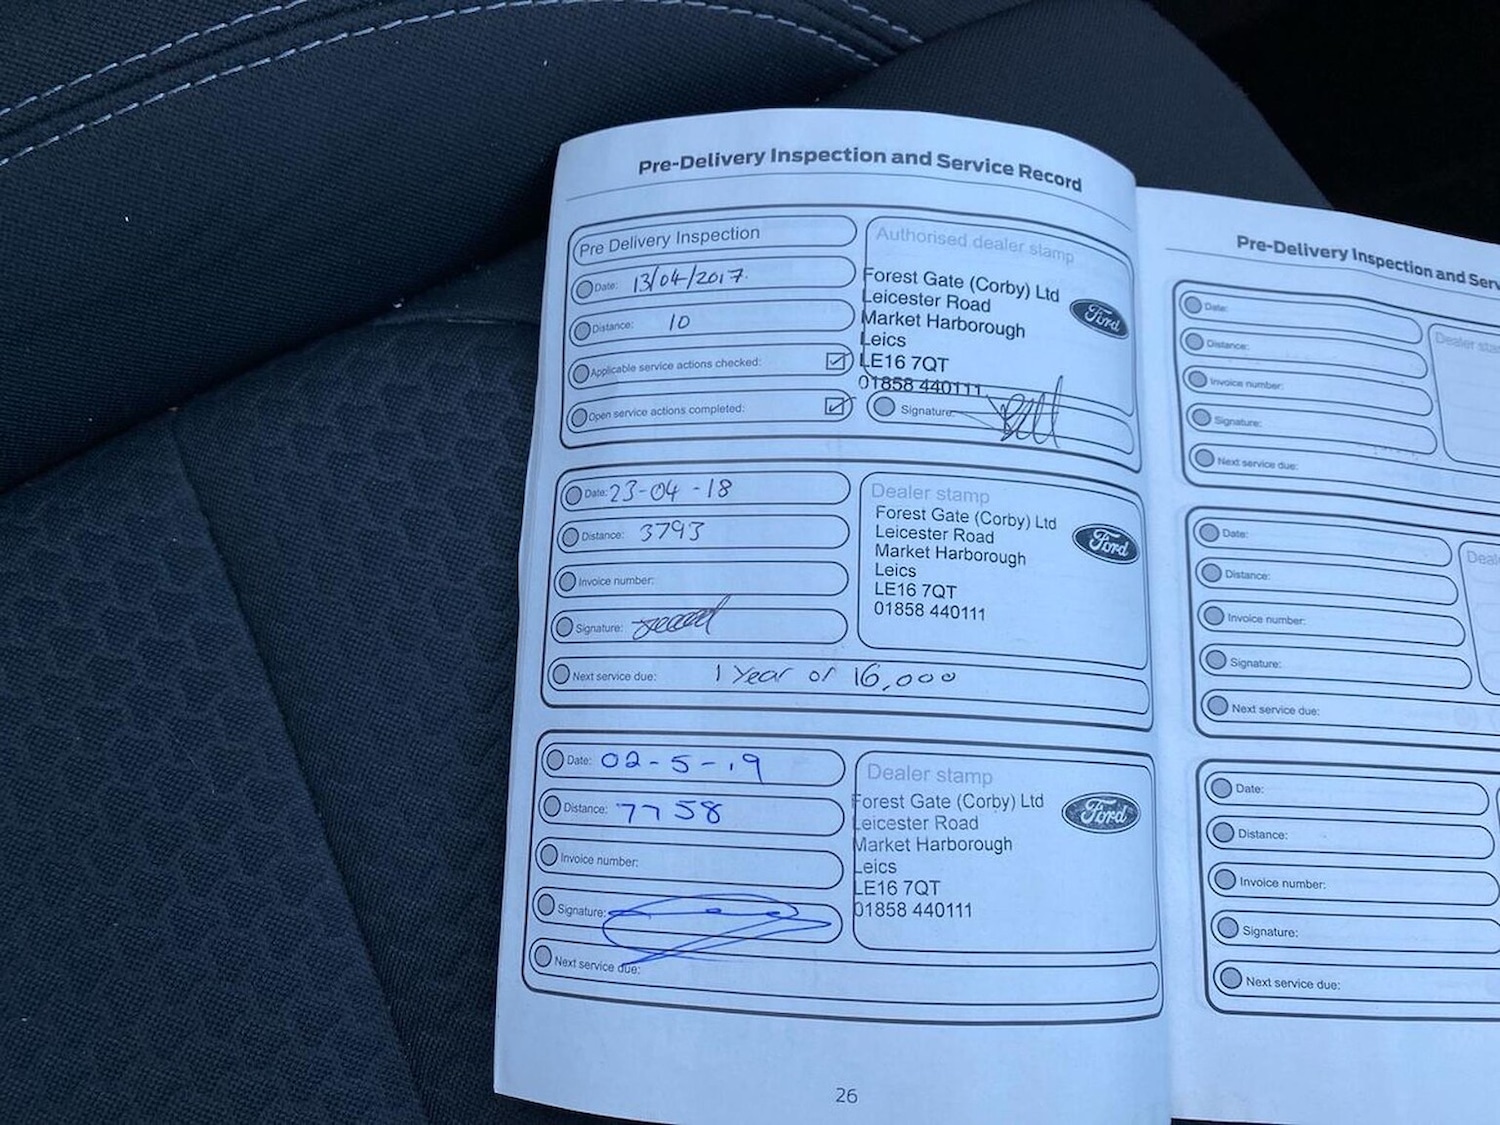 Pre-Delivery Inspection and Service Record
Pre Delivery Inspection
Date: 13/04/2017.
Distance: 10
Applicable service actions checked:
Open service actions completed:
Authorised dealer stamp
Forest Gate (Corby) Ltd
Leicester Road
Market Harborough
Leics
LE16 7QT
01858 440111
Ford
Signature:
Date: 23-04-18
Distance: 3793
Invoice number:
Signature:
Next service due: 1 Year or 16,000
Dealer stamp
Forest Gate (Corby) Ltd
Leicester Road
Market Harborough
Leics
LE16 7QT
01858 440111
Ford
Date: 02-5-19
Distance: 7758
Invoice number:
Signature:
Next service due:
Dealer stamp
Forest Gate (Corby) Ltd
Leicester Road
Market Harborough
Leics
LE16 7QT
01858 440111
Ford
26
Pre-Delivery Inspection and Serv
Date:
Distance:
Invoice number:
Signature:
Next service due:
Dealer sta
Date:
Distance:
Invoice number:
Signature:
Next service due:
Deal
Date:
Distance:
Invoice number:
Signature:
Next service due: